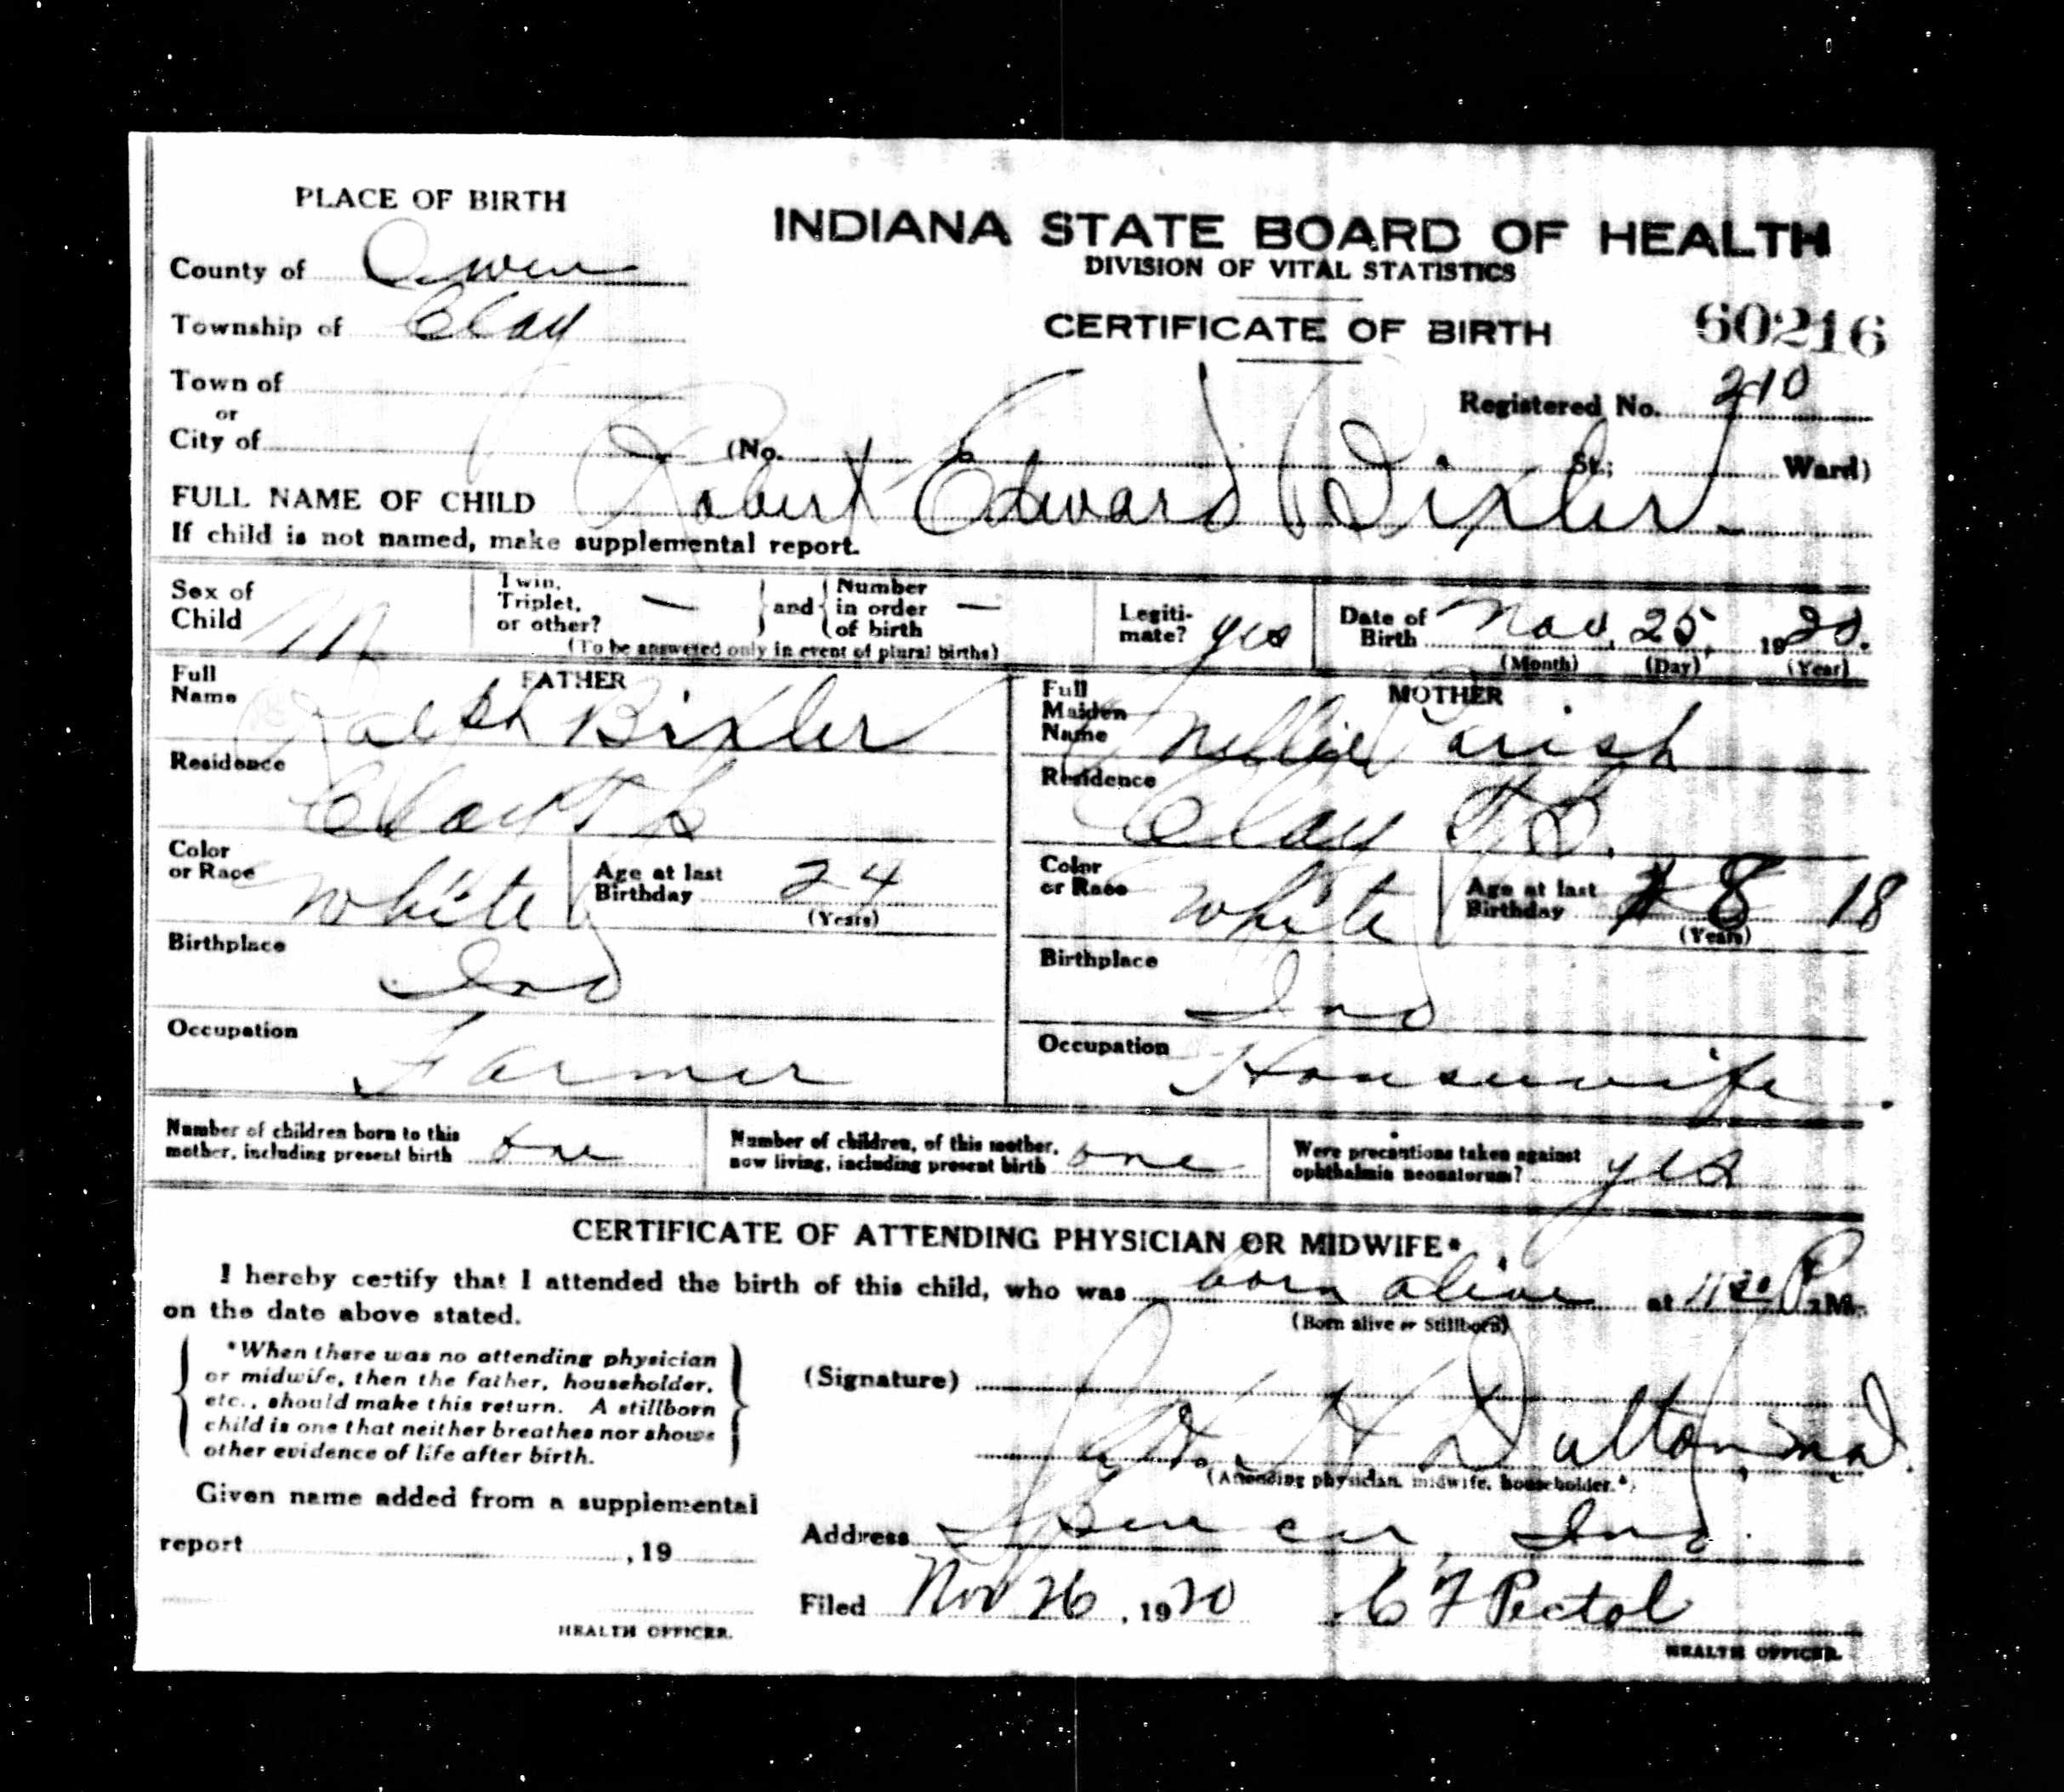 PLACE OF BIRTH
INDIANA STATE BOARD OF HEALTH
DIVISION OF VITAL STATISTICS
CERTIFICATE OF BIRTH
60216
County of Owen
Township of Clay
Town of
or
City of (No. St.; Ward)
Registered No. 210
FULL NAME OF CHILD Robert Edward Bixler
If child is not named, make supplemental report.
Sex of Child M
Twin, Triplet, or other? — and Number in order of birth —
(To be answered only in event of plural births)
Legitimate? yes
Date of Birth Nov. 25, 1920.
(Month) (Day) (Year)
FATHER
Full Name Ralph Bixler
Residence Clay
Color or Race White
Age at last Birthday 24
(Years)
Birthplace Ind
Occupation Farmer
MOTHER
Full Maiden Name Nellie Parish
Residence Clay
Color or Race White
Age at last Birthday 8 18
(Years)
Birthplace Ind
Occupation Housewife.
Number of children born to this mother, including present birth one
Number of children, of this mother, now living, including present birth one
Were precautions taken against ophthalmia neonatorum? yes
CERTIFICATE OF ATTENDING PHYSICIAN OR MIDWIFE*
I hereby certify that I attended the birth of this child, who was born alive at 11 P. M.
on the date above stated.
(Born alive or Stillborn)
*When there was no attending physician
or midwife, then the father, householder,
etc., should make this return. A stillborn
child is one that neither breathes nor shows
other evidence of life after birth.
(Signature)
H Dalton, M.D.
(Attending physician, midwife, householder.*)
Given name added from a supplemental
report , 19
HEALTH OFFICER.
Address Spencer, Ind.
Filed Nov 26, 1920 Pectol
HEALTH OFFICER.